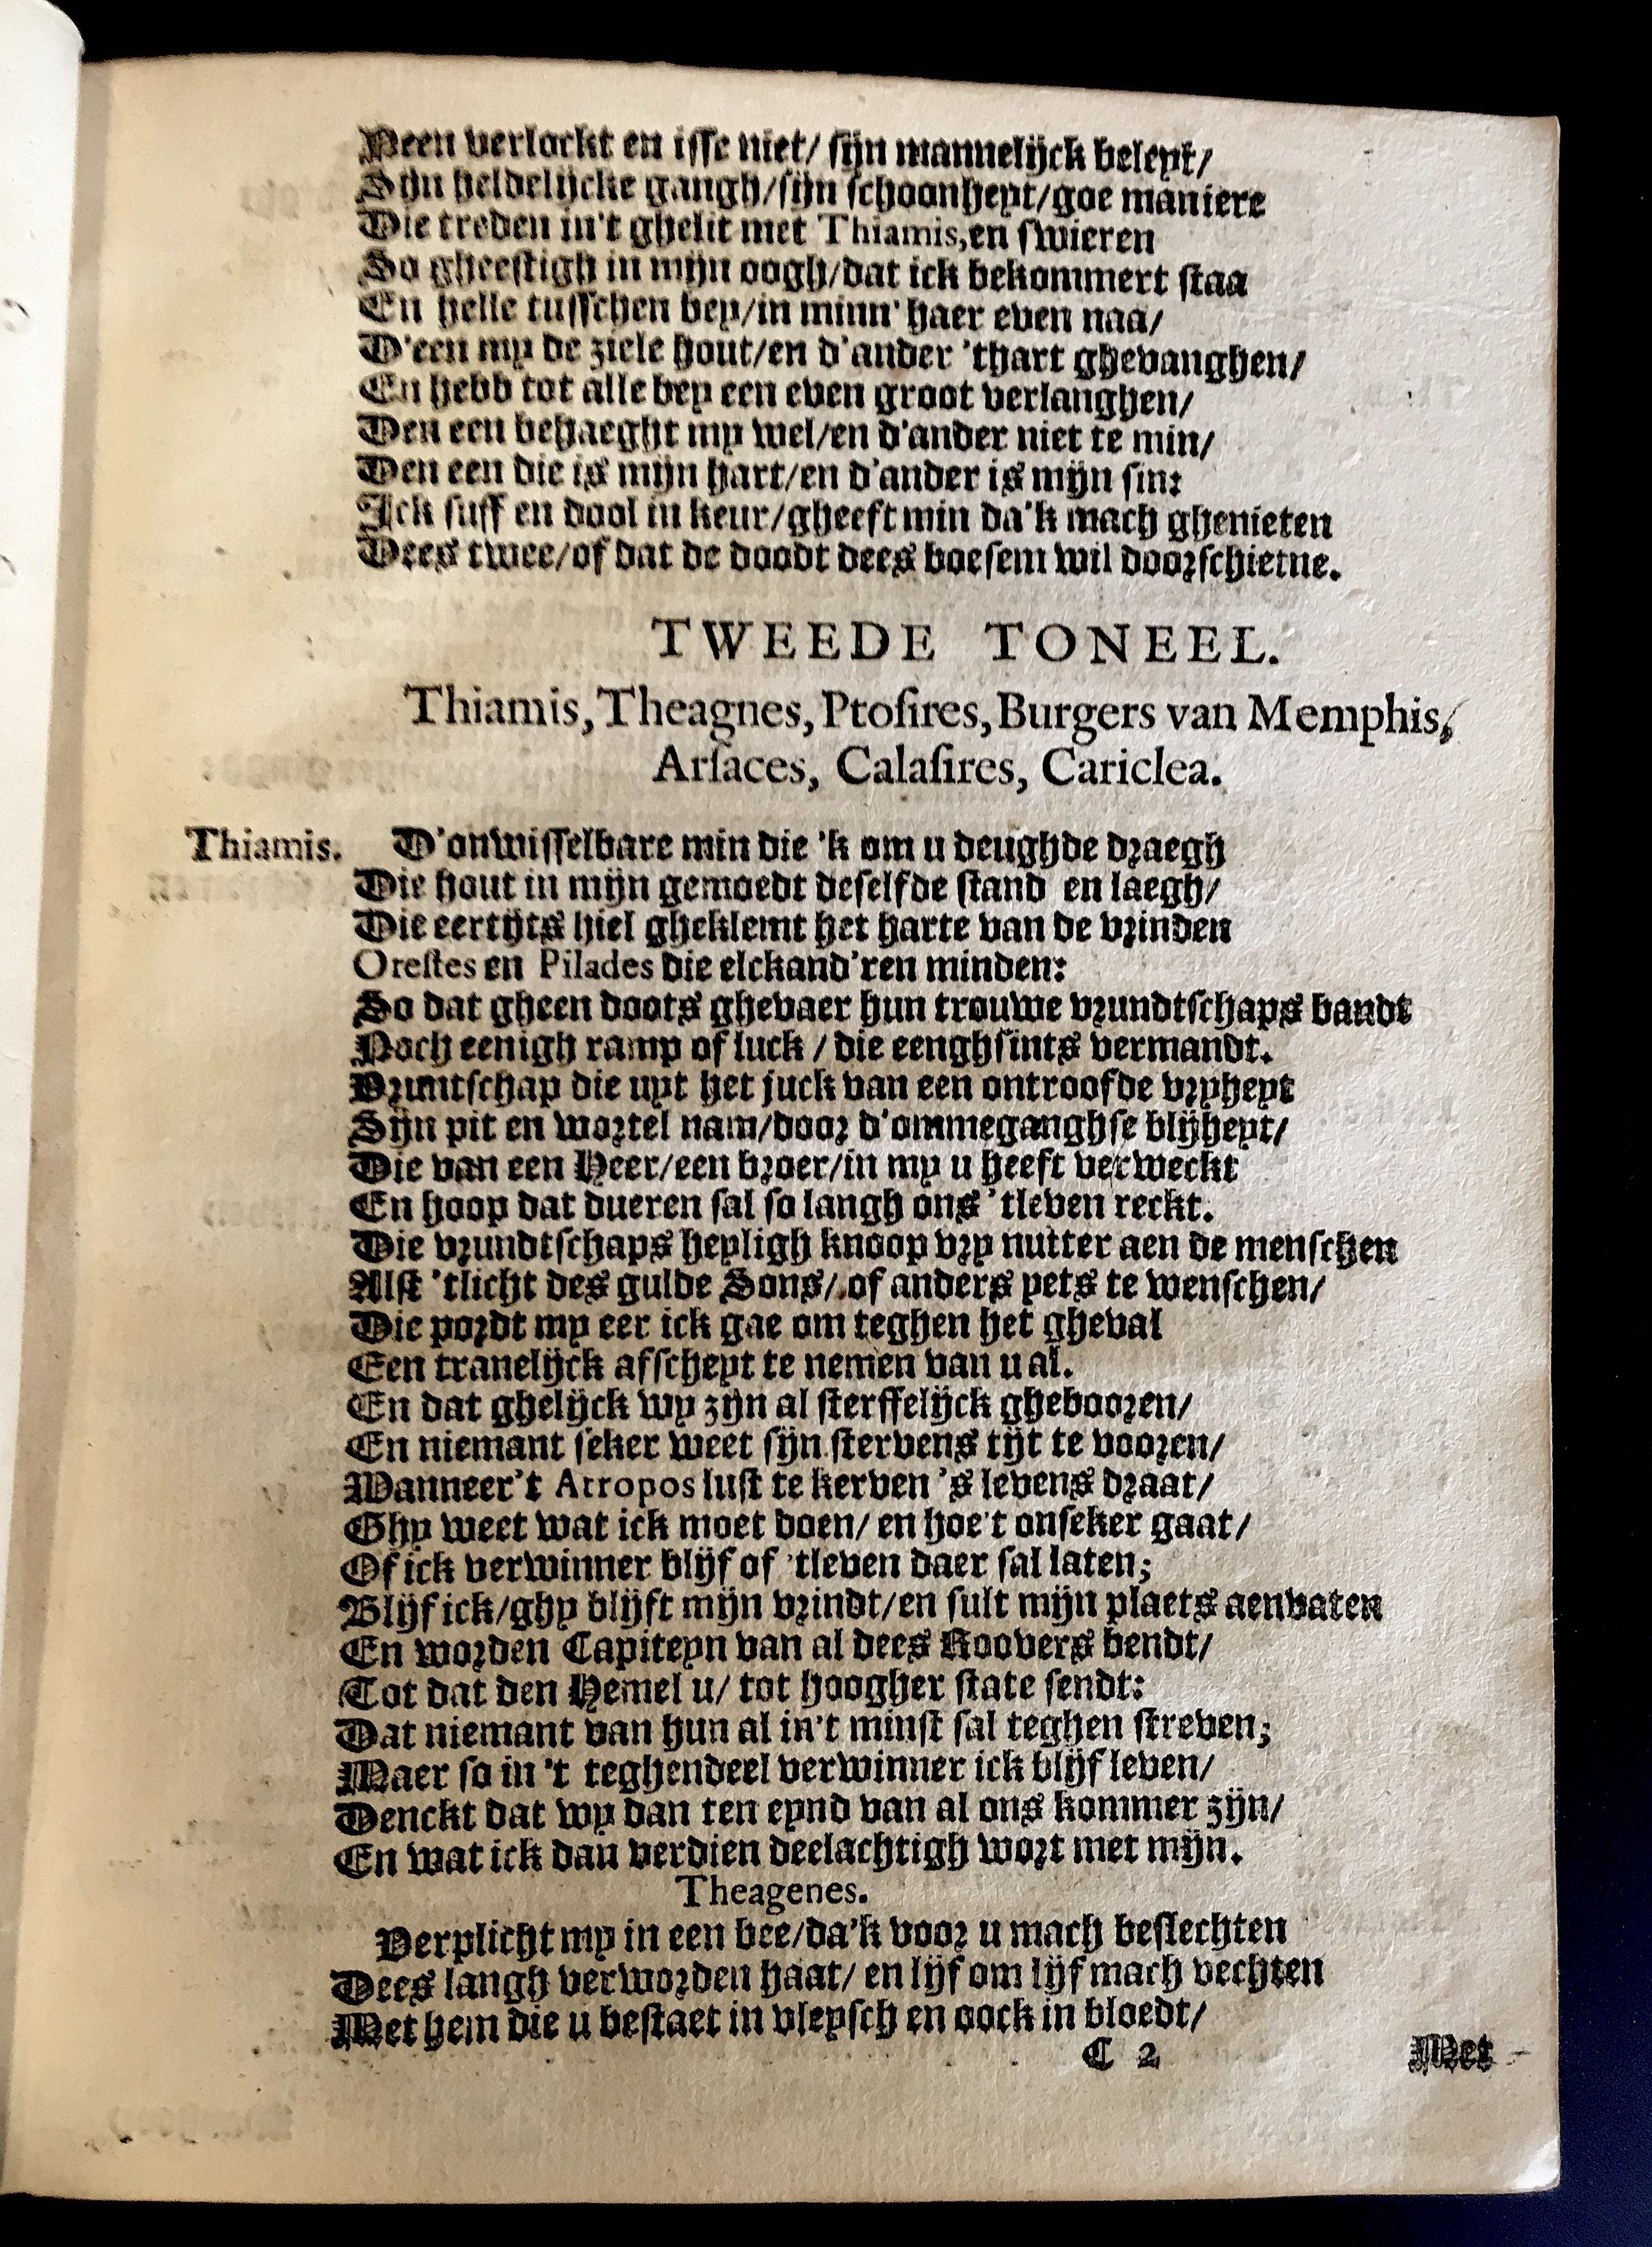 Neen verlockt en isse niet/ sijn mannelijck beleyt/
Sijn heldelijcke gangh/sijn schoonheyt/goe maniere
Die treden in't ghelit met Thiamis,en swieren
So gheestigh in mijn oogh/dat ick bekommert staa
En helle tusschen bey/in minn' haer even naa/
D'een my de ziele hout/en d'ander 'thart ghevanghen/
En hebb tot alle bey een even groot verlanghen/
Den een behaeght my wel/en d'ander niet te min/
Den een die is mijn hart/en d'ander is mijn sin:
Ick suff en dool in keur/gheeft min da'k mach ghenieten
Dees twee/of dat de doodt dees boesem wil doorschietne.
TWEEDE TONEEL.
Thiamis,Theagnes,Ptosires,Burgers van Memphis,
Arsaces, Calasires, Cariclea.
Thiamis. D'onwisselbare min die 'k om u deughde draegh
Die hout in mijn gemoedt deselfde stand en laegh/
Die eertijts hiel gheklemt het harte van de vrinden
Orestes en Pilades die elckand'ren minden:
So dat gheen doots ghevaer hun trouwe vrundtschaps bandt
Noch eenigh ramp of luck / die eenghsints vermandt.
Vruntschap die uyt het juck van een ontroofde vryheyt
Sijn pit en wortel nam/door d'ommeganghse blijheyt/
Die van een Heer/een broer/in my u heeft verweckt
En hoop dat dueren sal so langh ons 'tleven reckt.
Die vrundtschaps heyligh knoop vry nutter aen de menschen
Alst 'tlicht des gulde Sons/ of anders yets te wenschen/
Die pordt my eer ick gae om teghen het gheval
Een tranelijck afscheyt te nemen van u al.
En dat ghelijck wy zijn al sterffelijck ghebooren/
En niemant seker weet sijn stervens tijt te vooren/
Wanneer't Atropos lust te kerven 's levens draat/
Ghy weet wat ick moet doen/ en hoe't onseker gaat/
Of ick verwinner blijf of 'tleven daer sal laten;
Blijf ick/ghy blijft mijn vrindt/en sult mijn plaets aenvaten
En worden Capiteyn van al dees Roovers bendt/
Tot dat den Hemel u/ tot hoogher state sendt:
Dat niemant van hun al in't minst sal teghen streven;
Maer so in 't teghendeel verwinner ick blijf leven/
Denckt dat wy dan ten eynd van al ons kommer zijn/
En wat ick dan verdien deelachtigh wort met mijn.
Theagenes.
Verplicht my in een bee/da'k voor u mach beslechten
Dees langh verworden haat/ en lijf om lijf mach vechten
Met hem die u bestaet in vleysch en oock in bloedt/
C 2 Met